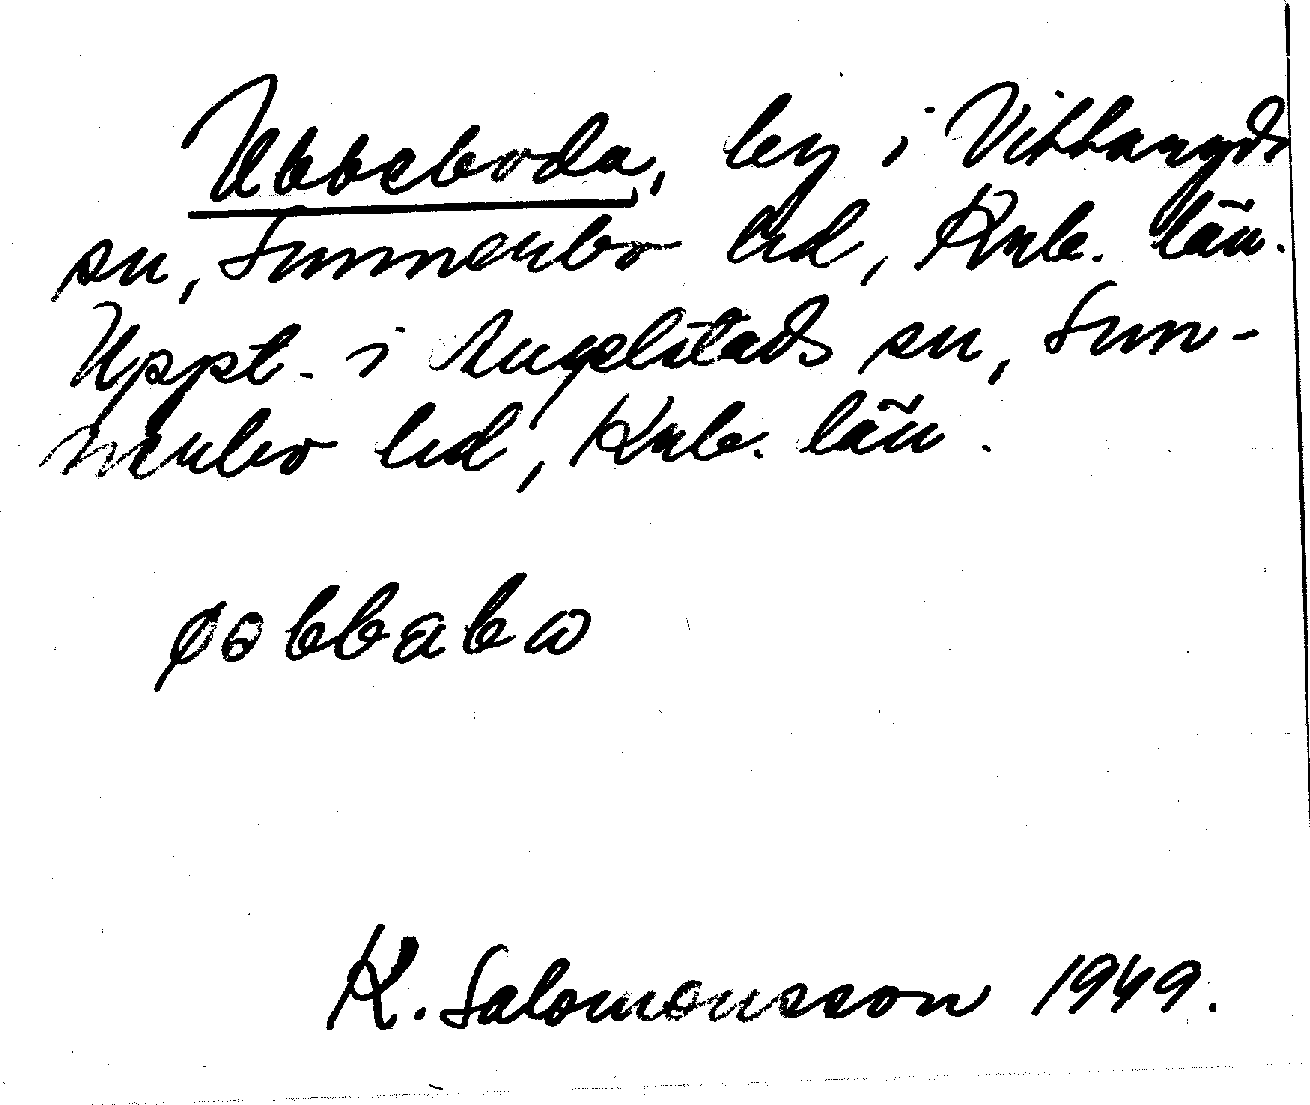 Ubbeboda, by i Vittaryds
sn, Sunnerbo hd, Krb. län.
Uppt. i Angelstads sn, Sun-
nerbo hd, Krb. län.
K. Salomonsson 1949.